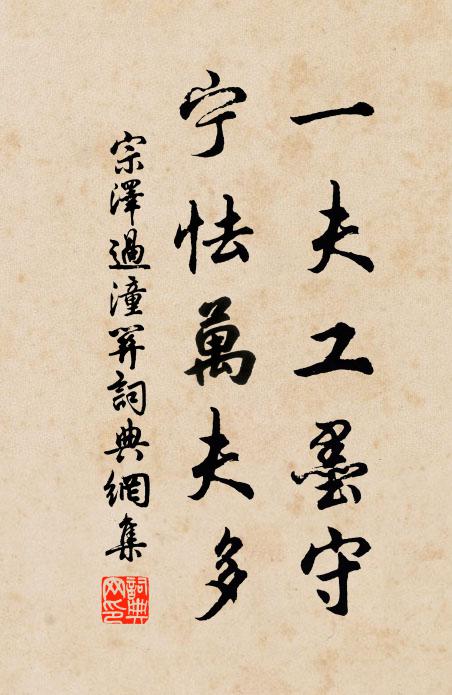 一夫工墨守
宁怯萬夫多
宗澤過潼関詞典網集
詞典网印